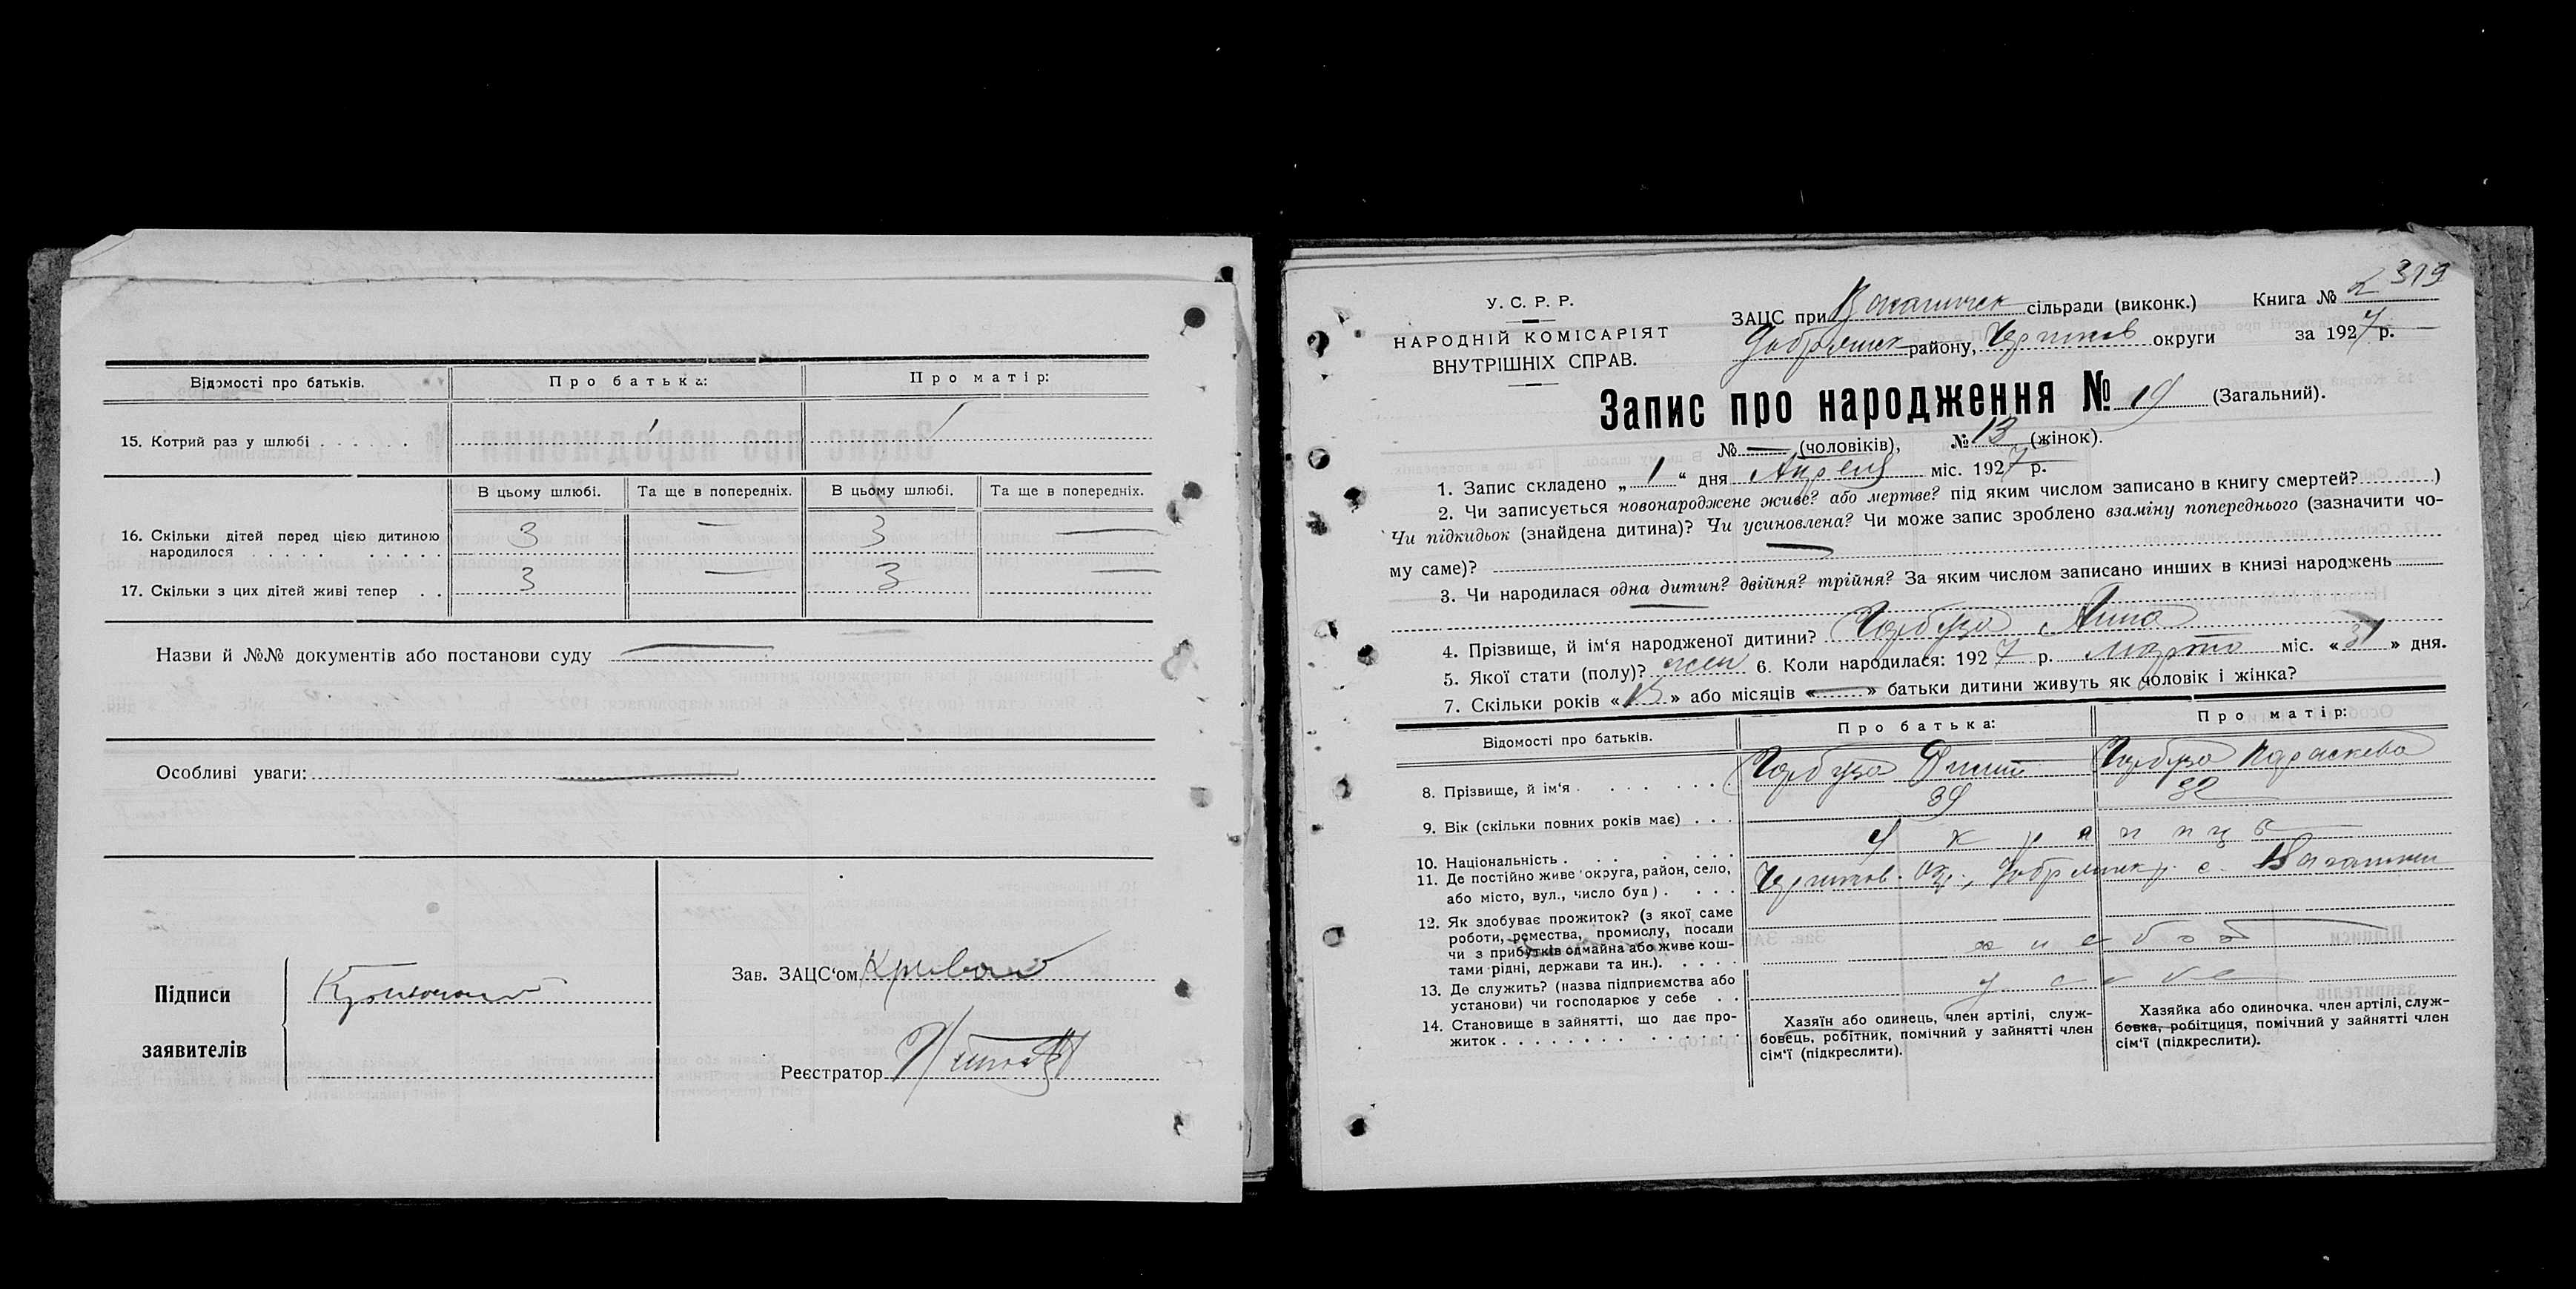 Відомості про батьків. Про батька: Про матір:
15. Котрий раз у шлюбі . . . . . . 1 1
В цьому шлюбі. Та ще в попередніх. В цьому шлюбі. Та ще в попередніх.
16. Скільки дітей перед цією дитиною
народилося . . . . . . . . . . 3 — 3 —
17. Скільки з цих дітей живі тепер . . 3 — 3 —
Назви й №№ документів або постанови суду —
Особливі уваги: —
Підписи
заявителів
Зав. ЗАЦС‘ом
Реєстратор
319
У. С. Р. Р.
НАРОДНІЙ КОМІСАРІЯТ
ВНУТРІШНІХ СПРАВ.
ЗАЦС при сільради (виконк.) Книга № 2
району, Чернигов округи за 1927 р.
Запис про народження № 19 (Загальний).
№ — (чоловіків), № 13 (жінок).
1. Запис складено „ 1 “ дня Апреля міс. 1927 р.
2. Чи записується новонароджене живе? або мертве? під яким числом записано в книгу смертей? )
Чи підкидьок (знайдена дитина)? Чи усиновлена? Чи може запис зроблено взаміну попереднього (зазначити чо-
му саме)? —
3. Чи народилася одна дитин? двійня? трійня? За яким числом записано инших в книзі народжень
4. Прізвище, й ім‘я народженої дитини? Гарбуза Анна
5. Якої стати (полу)? жен 6. Коли народилася: 1927 р. марта міс. « 31 » дня.
7. Скільки років « 13 » або місяців « — » батьки дитини живуть як чоловік і жінка?
Відомості про батьків. Про батька: Про матір:
8. Прізвище, й ім‘я . . . . . . . Гарбуза Гарбуза Параскева
9. Вік (скільки повних років має) . . . 39 32
10. Національність . . . . . . . украинцы
11. Де постійно живе округа, район, село,
або місто, вул., число буд) . . . . Чернигов. окр., р. с.
12. Як здобуває прожиток? (з якої саме
роботи, ремества, промислу, посади
чи з прибутків одмайна або живе кош-
тами рідні, держави та ин.). . . . . хлебоб
13. Де служить? (назва підприємства або
установи) чи господарює у себе . . у себе
14. Становище в зайнятті, що дає про-
житок . . . . . . . . . . . . . .
Хазяїн або одинець, член артілі, служ-
бовець, робітник, помічний у зайнятті член
сім‘ї (підкреслити).
Хазяйка або одиночка. член артілі, служ-
бовка, робітциця, помічний у зайнятті член
сім‘ї (підкреслити).